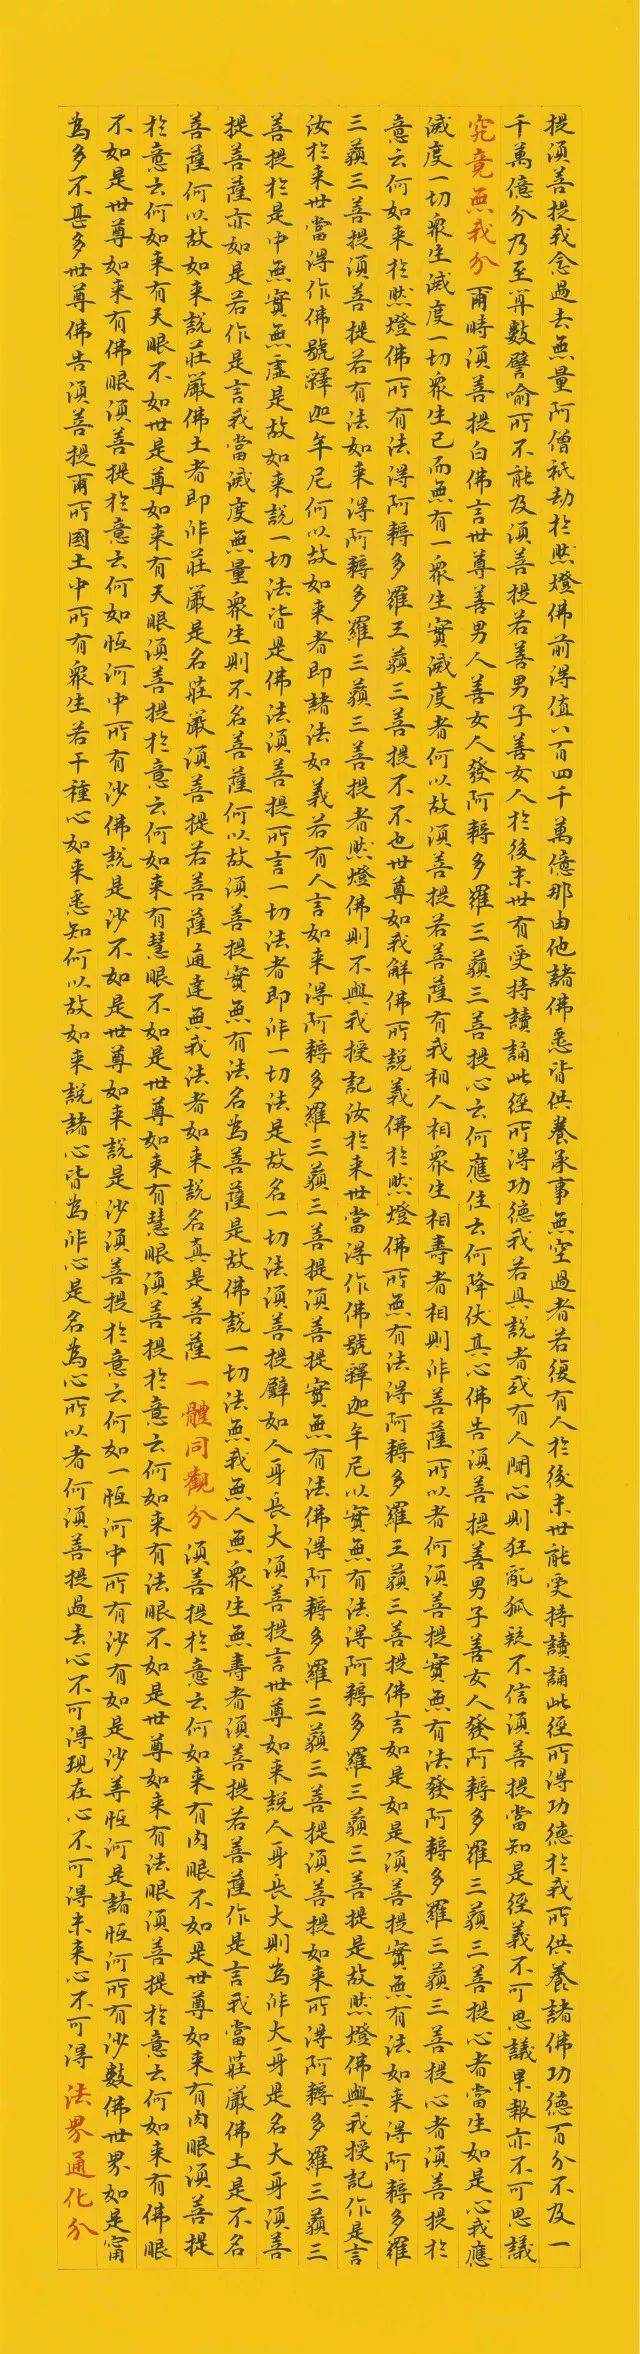 提須菩提我念過去無量阿僧祇劫於然燈佛前得值八百四千萬億那由他諸佛悉皆供養承事無空過者若復有人於後末世能受持讀誦此經所得功德於我所供養諸佛功德百分不及一
千萬億分乃至算數譬喻所不能及須菩提若善男子善女人於後末世有受持讀誦此經所得功德我若具說者或有人聞心則狂亂狐疑不信須菩提當知是經義不可思議果報亦不可思議
究竟無我分爾時須菩提白佛言世尊善男人善女人發阿耨多羅三藐三菩提心云何應住云何降伏其心佛告須菩提善男子善女人發阿耨多羅三藐三菩提心者當生如是心我應
滅度一切眾生滅度一切眾生已而無有一眾生實滅度者何以故須菩提若菩薩有我相人相眾生相壽者相則非菩薩所以者何須菩提實無有法發阿耨多羅三藐三菩提心者須菩提於
意云何如來於然燈佛所有法得阿耨多羅三藐三菩提不不也世尊如我解佛所說義佛於然燈佛所無有法得阿耨多羅三藐三菩提佛言如是如是須菩提實無有法如來得阿耨多羅
三藐三菩提須菩提若有法如來得阿耨多羅三藐三菩提者然燈佛則不與我授記汝於來世當得作佛號釋迦牟尼以實無有法得阿耨多羅三藐三菩提是故然燈佛與我授記作是言
汝於來世當得作佛號釋迦牟尼何以故如來者即諸法如義若有人言如來得阿耨多羅三藐三菩提須菩提實無有法佛得阿耨多羅三藐三菩提須菩提如來所得阿耨多羅三藐三
菩提於是中無實無虛是故如來說一切法皆是佛法須菩提所言一切法者即非一切法是故名一切法須菩提譬如人身長大須菩提言世尊如來說人身長大則為非大身是名大身須菩
提菩薩亦如是若作是言我當滅度無量眾生則不名菩薩何以故須菩提實無有法名為菩薩是故佛說一切法無我無人無眾生無壽者須菩提若菩薩作是言我當莊嚴佛土是不名
菩薩何以故如來說莊嚴佛土者即非莊嚴是名莊嚴須菩提若菩薩通達無我法者如來說名真是菩薩一體同觀分須菩提於意云何如來有肉眼不如是世尊如來有肉眼須菩提
於意云何如來有天眼不如世是尊如來有天眼須菩提於意云何如來有慧眼不如是世尊如來有慧眼須菩提於意云何如來有法眼不如是世尊如來有法眼須菩提於意云何如來有佛眼
不如是世尊如來有佛眼須菩提於意云何如恆河中所有沙佛說是沙不如是世尊如來說是沙須菩提於意云何如一恆河中所有沙有如是沙等恆河是諸恆河所有沙數佛世界如是甯
為多不甚多世尊佛告須菩提爾所國土中所有眾生若干種心如來悉知何以故如來說諸心皆為非心是名為心所以者何須菩提過去心不可得現在心不可得未來心不可得法界通化分